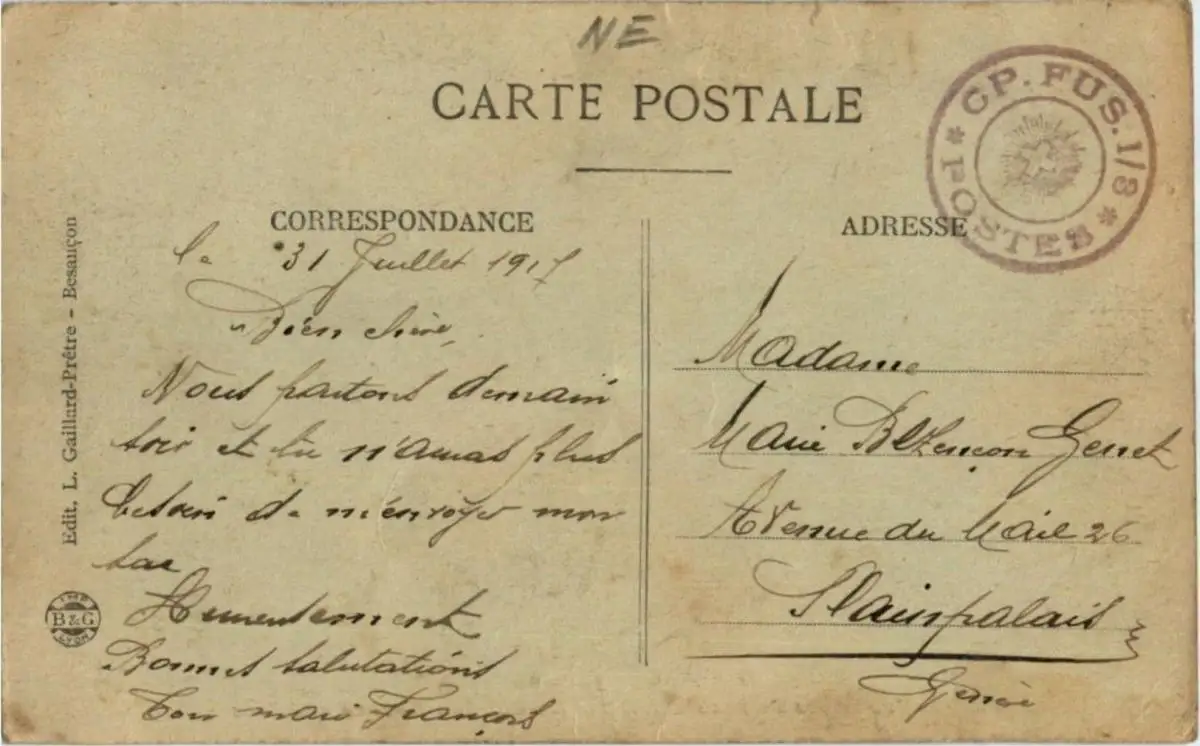 NE
CARTE POSTALE
CP. FUS. I/8
* POSTES *
CORRESPONDANCE
le 31 Juillet 1917
Bien chère,
Nous partons demain
soir et tu n'auras plus
besoin de m'envoyer mon
sac
Heureusement
Bonnes salutations
Ton mari François
ADRESSE
Madame
Marie Bezençon Genet
Avenue du Mail 26
Plainpalais
Genève
Edit. L. Gaillard-Prêtre - Besançon
IMP
B&G
LYON